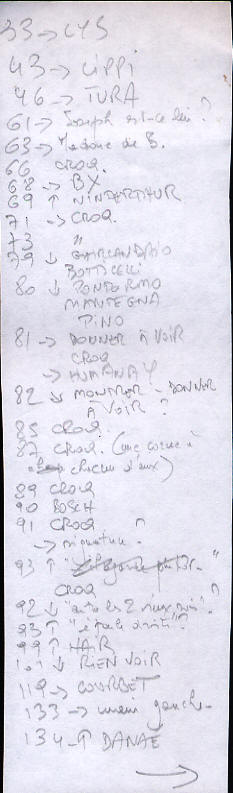 33 → LYS
43 → LIPPI
46 → TURA
61 → Joseph est-ce lui ?
63 → Madone de B.
66 CROQ.
68 → BX
69 ↑ WINTERTHUR
71 → CROQ.
73 "
79 ↓ GHIRLANDAIO
BOTTICELLI
80 ↓ PONTORMO
MANTEGNA
PINO
81 → DONNER À VOIR
CROQ
→ HUMAN
82 ↓ MONTRER - DONNER
À VOIR ?
85 CROQ.
87 CROQ. (une corne à
chacun d'eux)
89 CROQ
90 BOSCH
91 CROQ
→ signature ?
93 ↑
CROQ
92 ↓ les 2
93 ↑ droits" ?
99 ↑ HAIR
101 ↓ RIEN VOIR
119 → COURBET
133 → main gauche
134 → ↑ DANAÉ
→